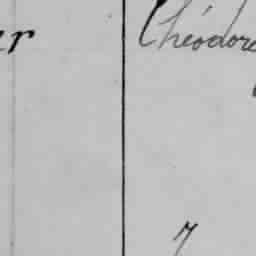 er Théodore